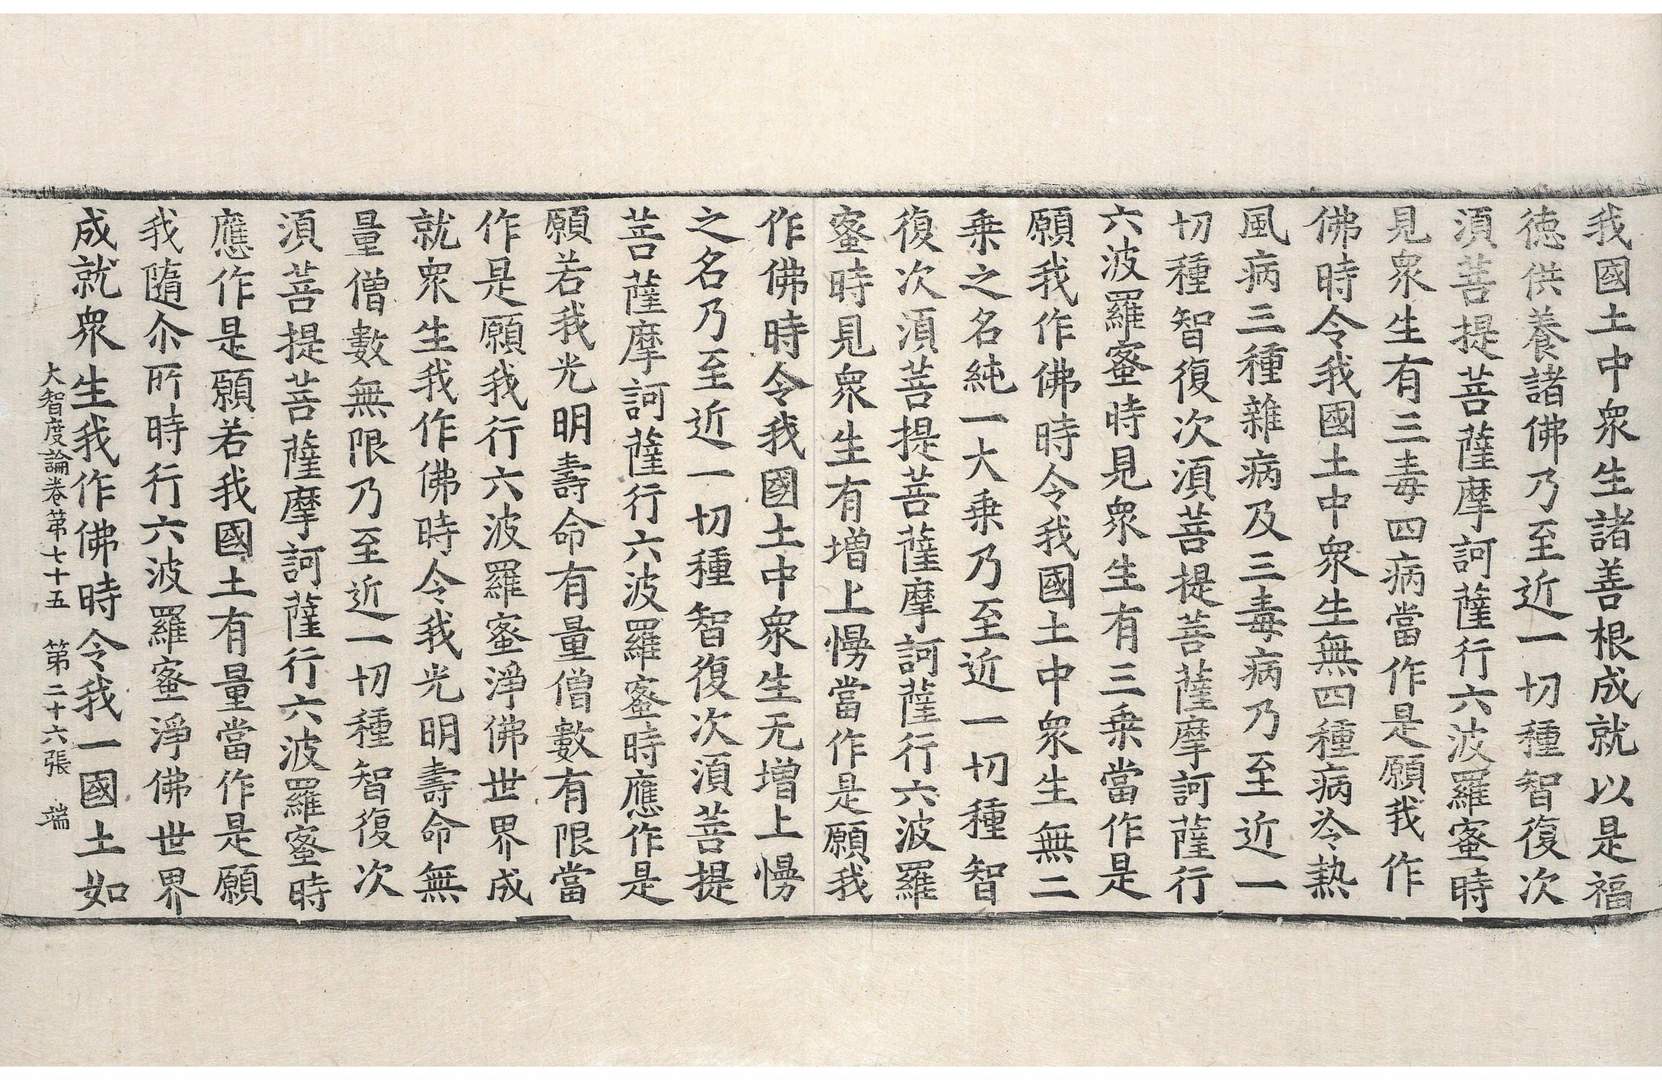 我國土中衆生諸善根成就以是福
德供養諸佛乃至近一切種智復次
須菩提菩薩摩訶薩行六波羅蜜時
見衆生有三毒四病當作是願我作
佛時令我國土中衆生無四種病冷熱
風病三種雜病及三毒病乃至近一
切種智復次須菩提菩薩摩訶薩行
六波羅蜜時見衆生有三乘當作是
願我作佛時令我國土中衆生無二
乘之名純一大乘乃至近一切種智
復次須菩提菩薩摩訶薩行六波羅
蜜時見衆生有增上慢當作是願我
作佛時令我國土中衆生无增上慢
之名乃至近一切種智復次須菩提
菩薩摩訶薩行六波羅蜜時應作是
願若我光明壽命有量僧數有限當
作是願我行六波羅蜜淨佛世界成
就衆生我作佛時令我光明壽命無
量僧數無限乃至近一切種智復次
須菩提菩薩摩訶薩行六波羅蜜時
應作是願若我國土有量當作是願
我隨尒所時行六波羅蜜淨佛世界
成就衆生我作佛時令我一國土如
大智度論卷第七十五 第二十六張 瑞